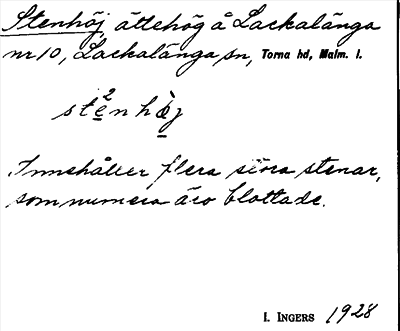 Stenhöj, ättehög å Lackalänga
nr 10, Lackalänga sn, Torna hd, Malm. l.
Innehåller flera stora stenar,
som numera äro blottade.
I. INGERS 1928